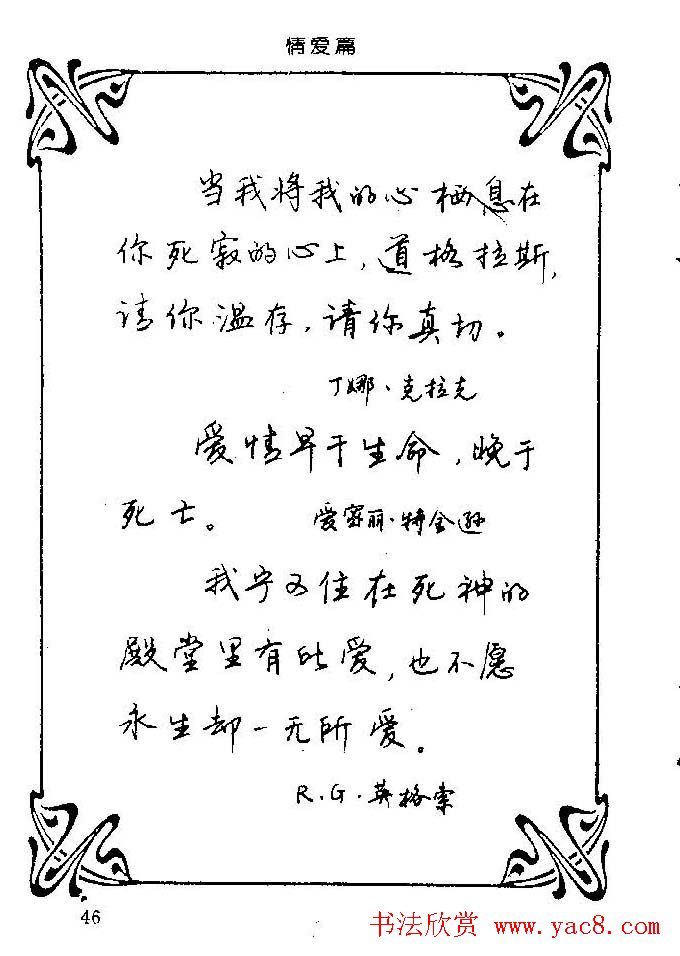 情爱篇
当我将我的心栖息在
你死寂的心上，道格拉斯，
请你温存，请你真切。
丁娜·克拉克
爱情早于生命，晚于
死亡。
爱密丽·特金逊
我宁可住在死神的
殿堂里有此爱，也不愿
永生却一无所爱。
R.G.英格索
46
书法欣赏 www.yac8.com